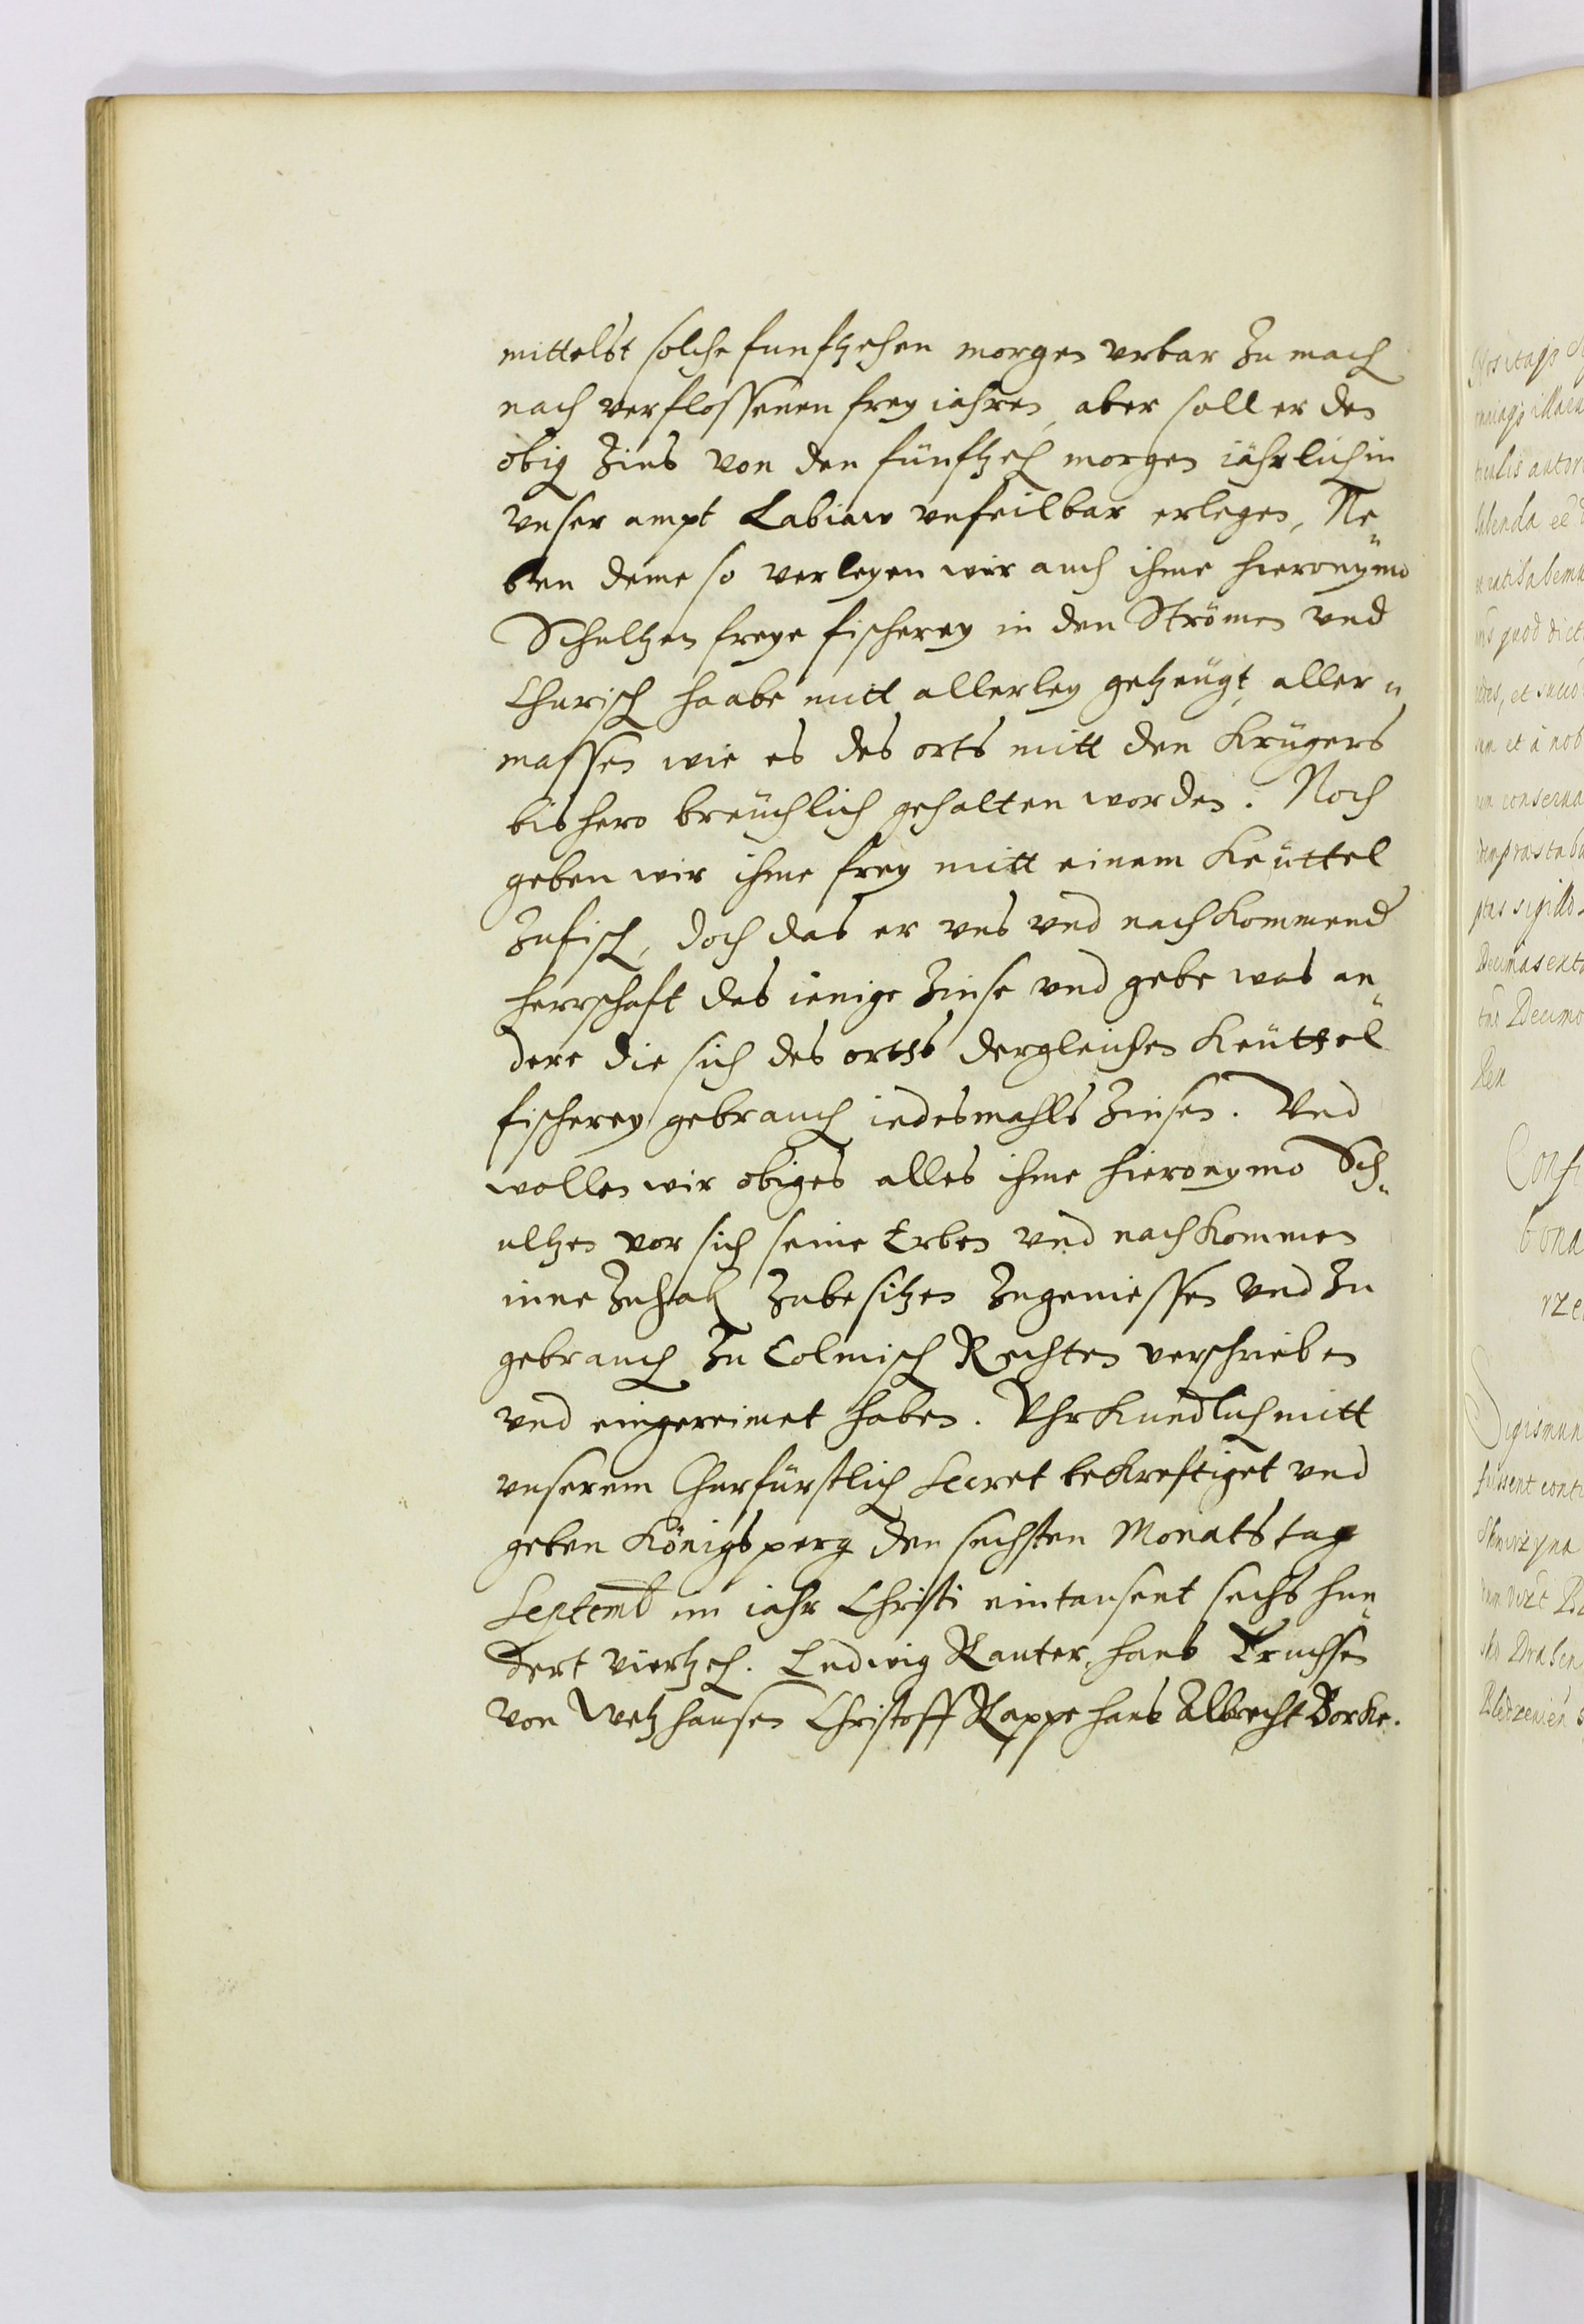 mittelst solche funftzehen morgen vrbar Zu mach
nach verflossenen frey iahren, aber soll er den
obig Zins von den fünftzeh morgen iährlich in
vnser ampt Labiaw vnfeilbar erlegen, Ne„
ben deme so verleyen wir auch ihme Hieronymo
Schultzen freye fischerey in den Strömen vnd
Churisch Haabe mitt allerley getzeugt, aller„
massen wie es des orts mitt den Krügers
bishero breuchlich gehalten worden. Noch
geben wir ihme frey mitt einem Keuttel
Zufisch, doch das er vns vnd nachkommend
herrschaft das ienige Zinse vnd gebe was an„
dere die sich des orths dergleichen Keuttel
fischerey gebrauch iedesmahls Zinsen. Vnd
wollen wir obiges alles ihme Hieronymo Sch„
ultzen vor sich seine Erben vnd nachkommen
inne Zuhab Zubesitzen Zugeniessen vnd Zu
gebrauch Zu Colmisch Rechten verschrieben
vnd eingereimet haben. Vhrkundlich mitt
vnserem Churfürstlich Secret bekreftiget vnd
geben Königsperg den sechsten Monatstag
Septemb im iahr Christi eintausent sechs hun„
dert viertzeh. Ludwig Rauter, Hans Truchses
von Wetzhausen Christoff Rappe Hans Albrecht Borke.